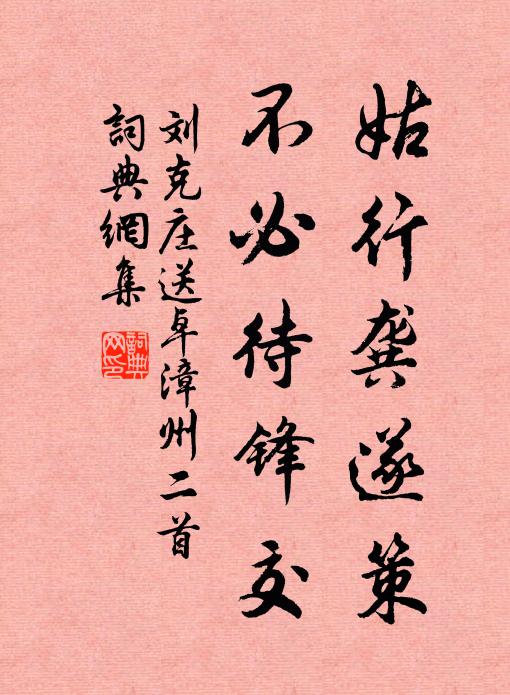 姑行龚遂策
不必待锋交
刘克庄送卓漳州二首
詞典網集
詞典
网印